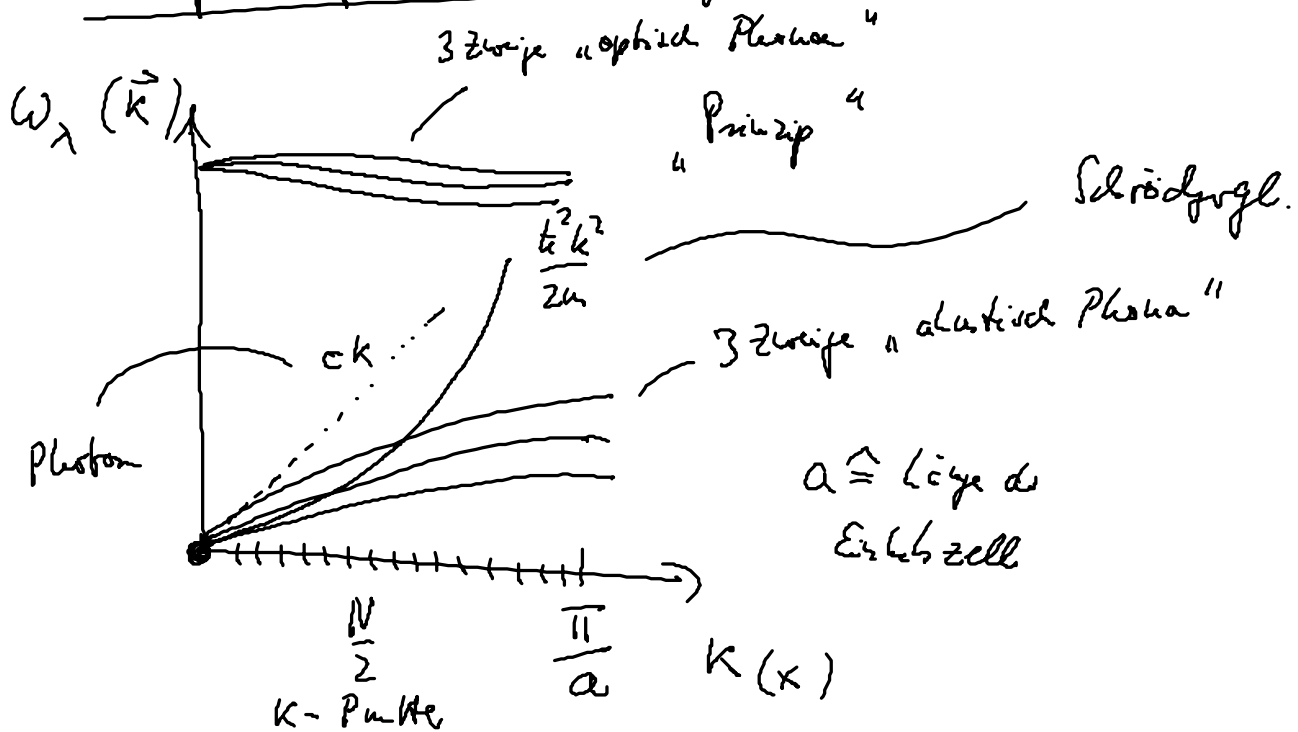 3 Zweige „optisch Phonon“
ω_λ (k⃗)
„Prinzip“
Schrödgvgl.
ħ²k²/2m
3 Zweige „akustisch Phonon“
ck
Photon
a ≙ Länge der
Einheitszelle
N/2
π/a
k (x)
K - Punkte